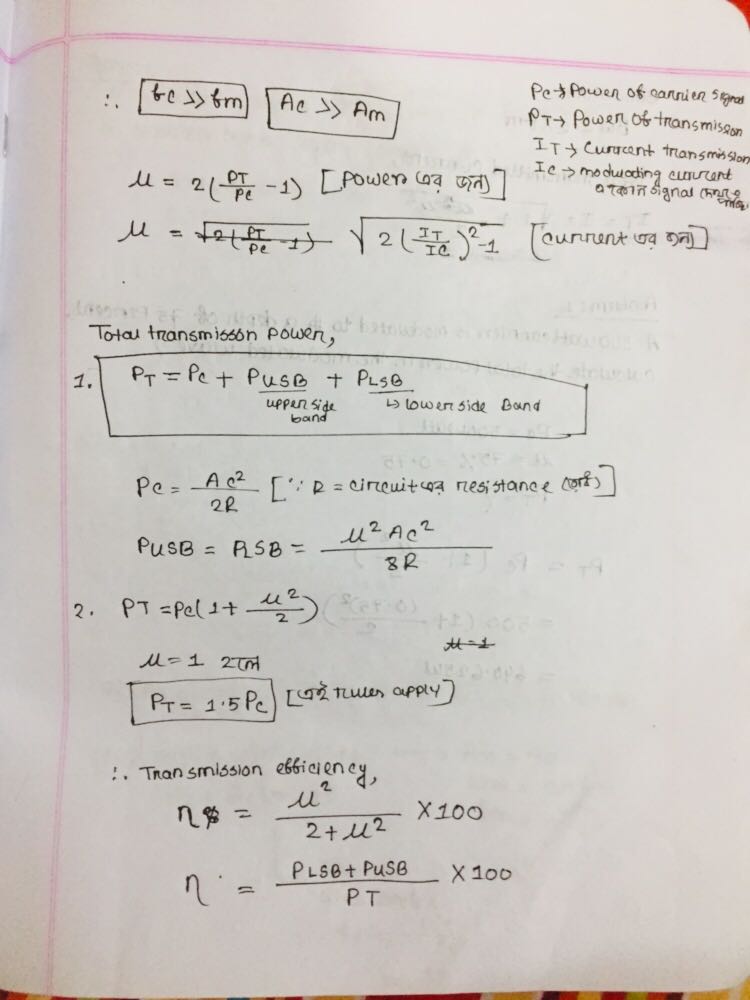 ∴ fc >> fm   Ac >> Am
Pc → Power of carrier signal
PT → Power of transmission
IT → Current transmission
Ic → modulating current
signal
μ = 2(PT/Pc - 1) [Power এর জন্য]
μ = √2(PT/Pc - 1) √2(IT/IC)²-1 [current এর জন্য]
Total transmisson power,
1. PT = Pc + PUSB + PLSB
upper side band ↳ lower side Band
Pc = Ac²/2R [∵ R = circuit এর resistance]
PUSB = PLSB = μ² Ac²/8R
2. PT = Pc(1 + μ²/2)
μ=1
μ = 1 হলে
PT = 1.5 Pc [এই rules apply]
∴ Transmission efficiency,
η = μ²/2+μ² × 100
η = PLSB + PUSB/PT × 100